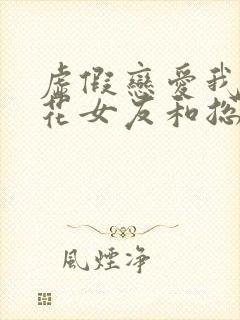 虛假戀愛我
花女友和總
風煙净